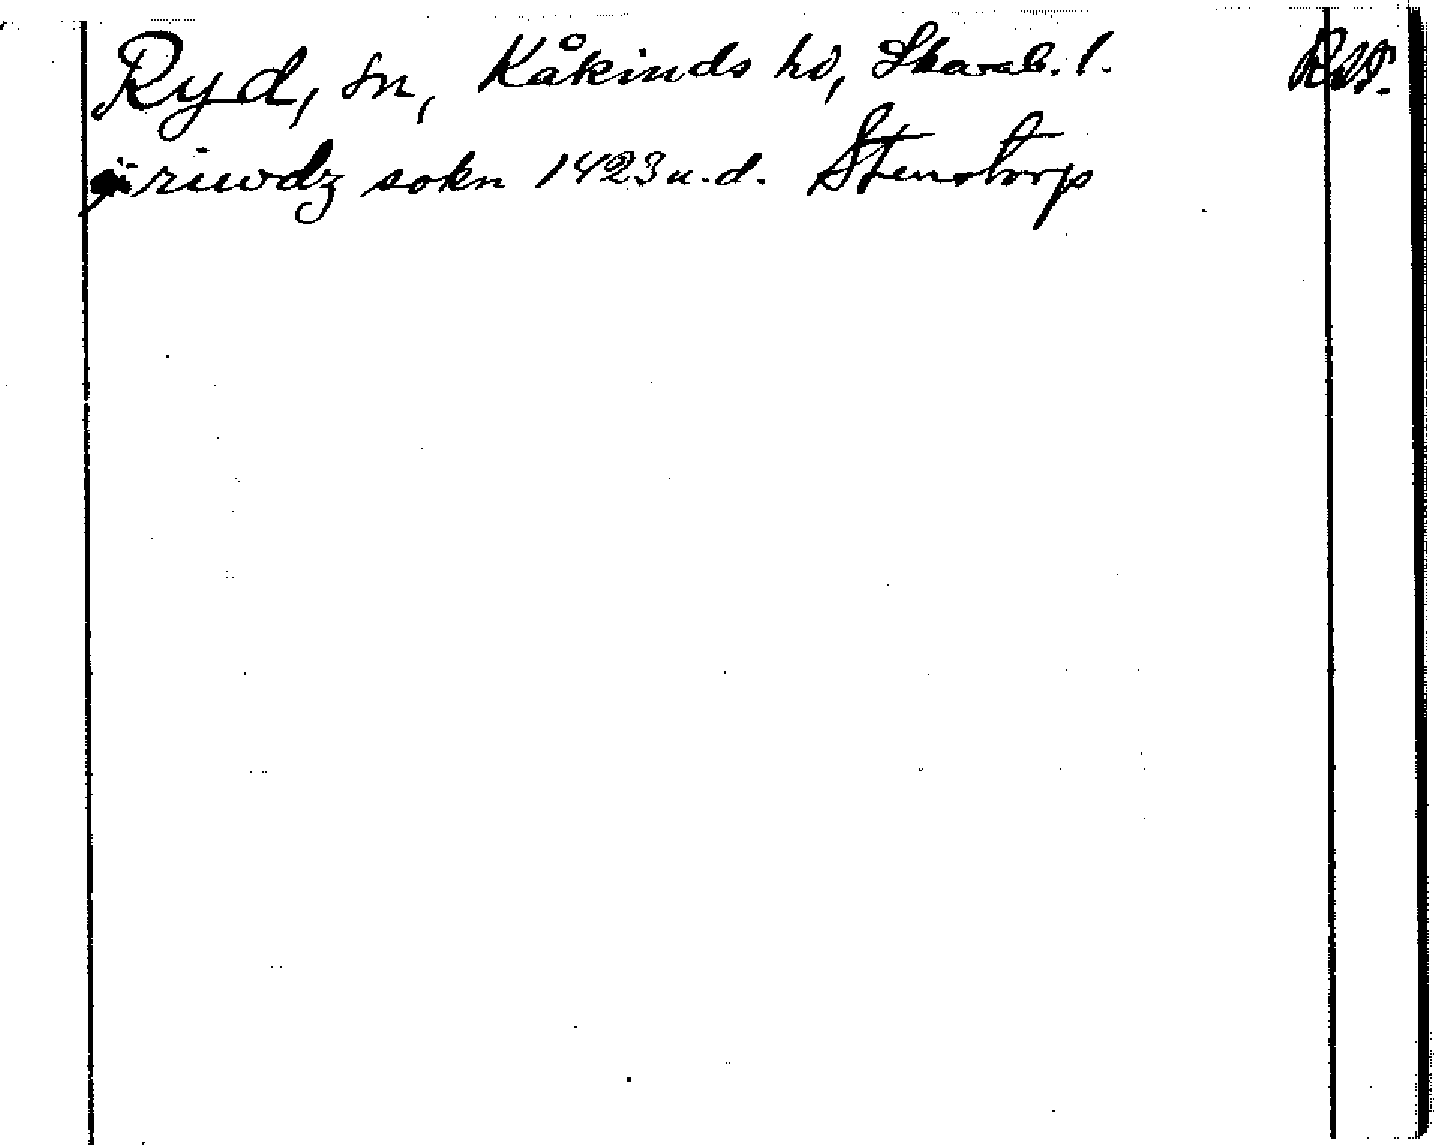 Ryd, sn, Kåkinds hd, Skarab. l.
i riwdz sokn 1423 u.d. Stenstorp